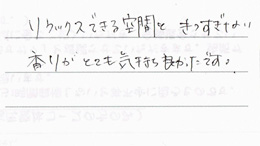 リラックスできる空間と きつすぎない
香りがとても気持ち良かったです。